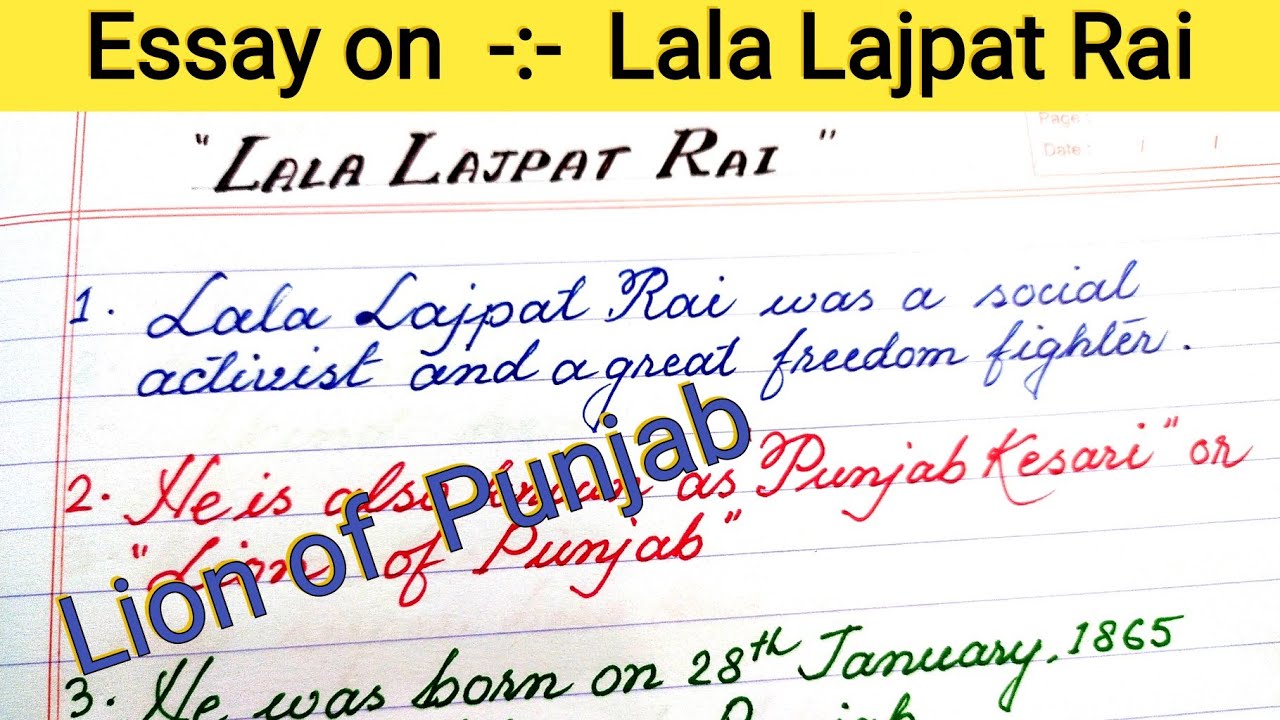 Essay on -:- Lala Lajpat Rai
Page :
Date : / /
" LALA LAJPAT RAI "
1. Lala Lajpat Rai was a social
activist and a great freedom fighter.
2. He is also known as "Punjab Kesari" or
"Lion of Punjab"
Lion of Punjab
3. He was born on 28th January, 1865